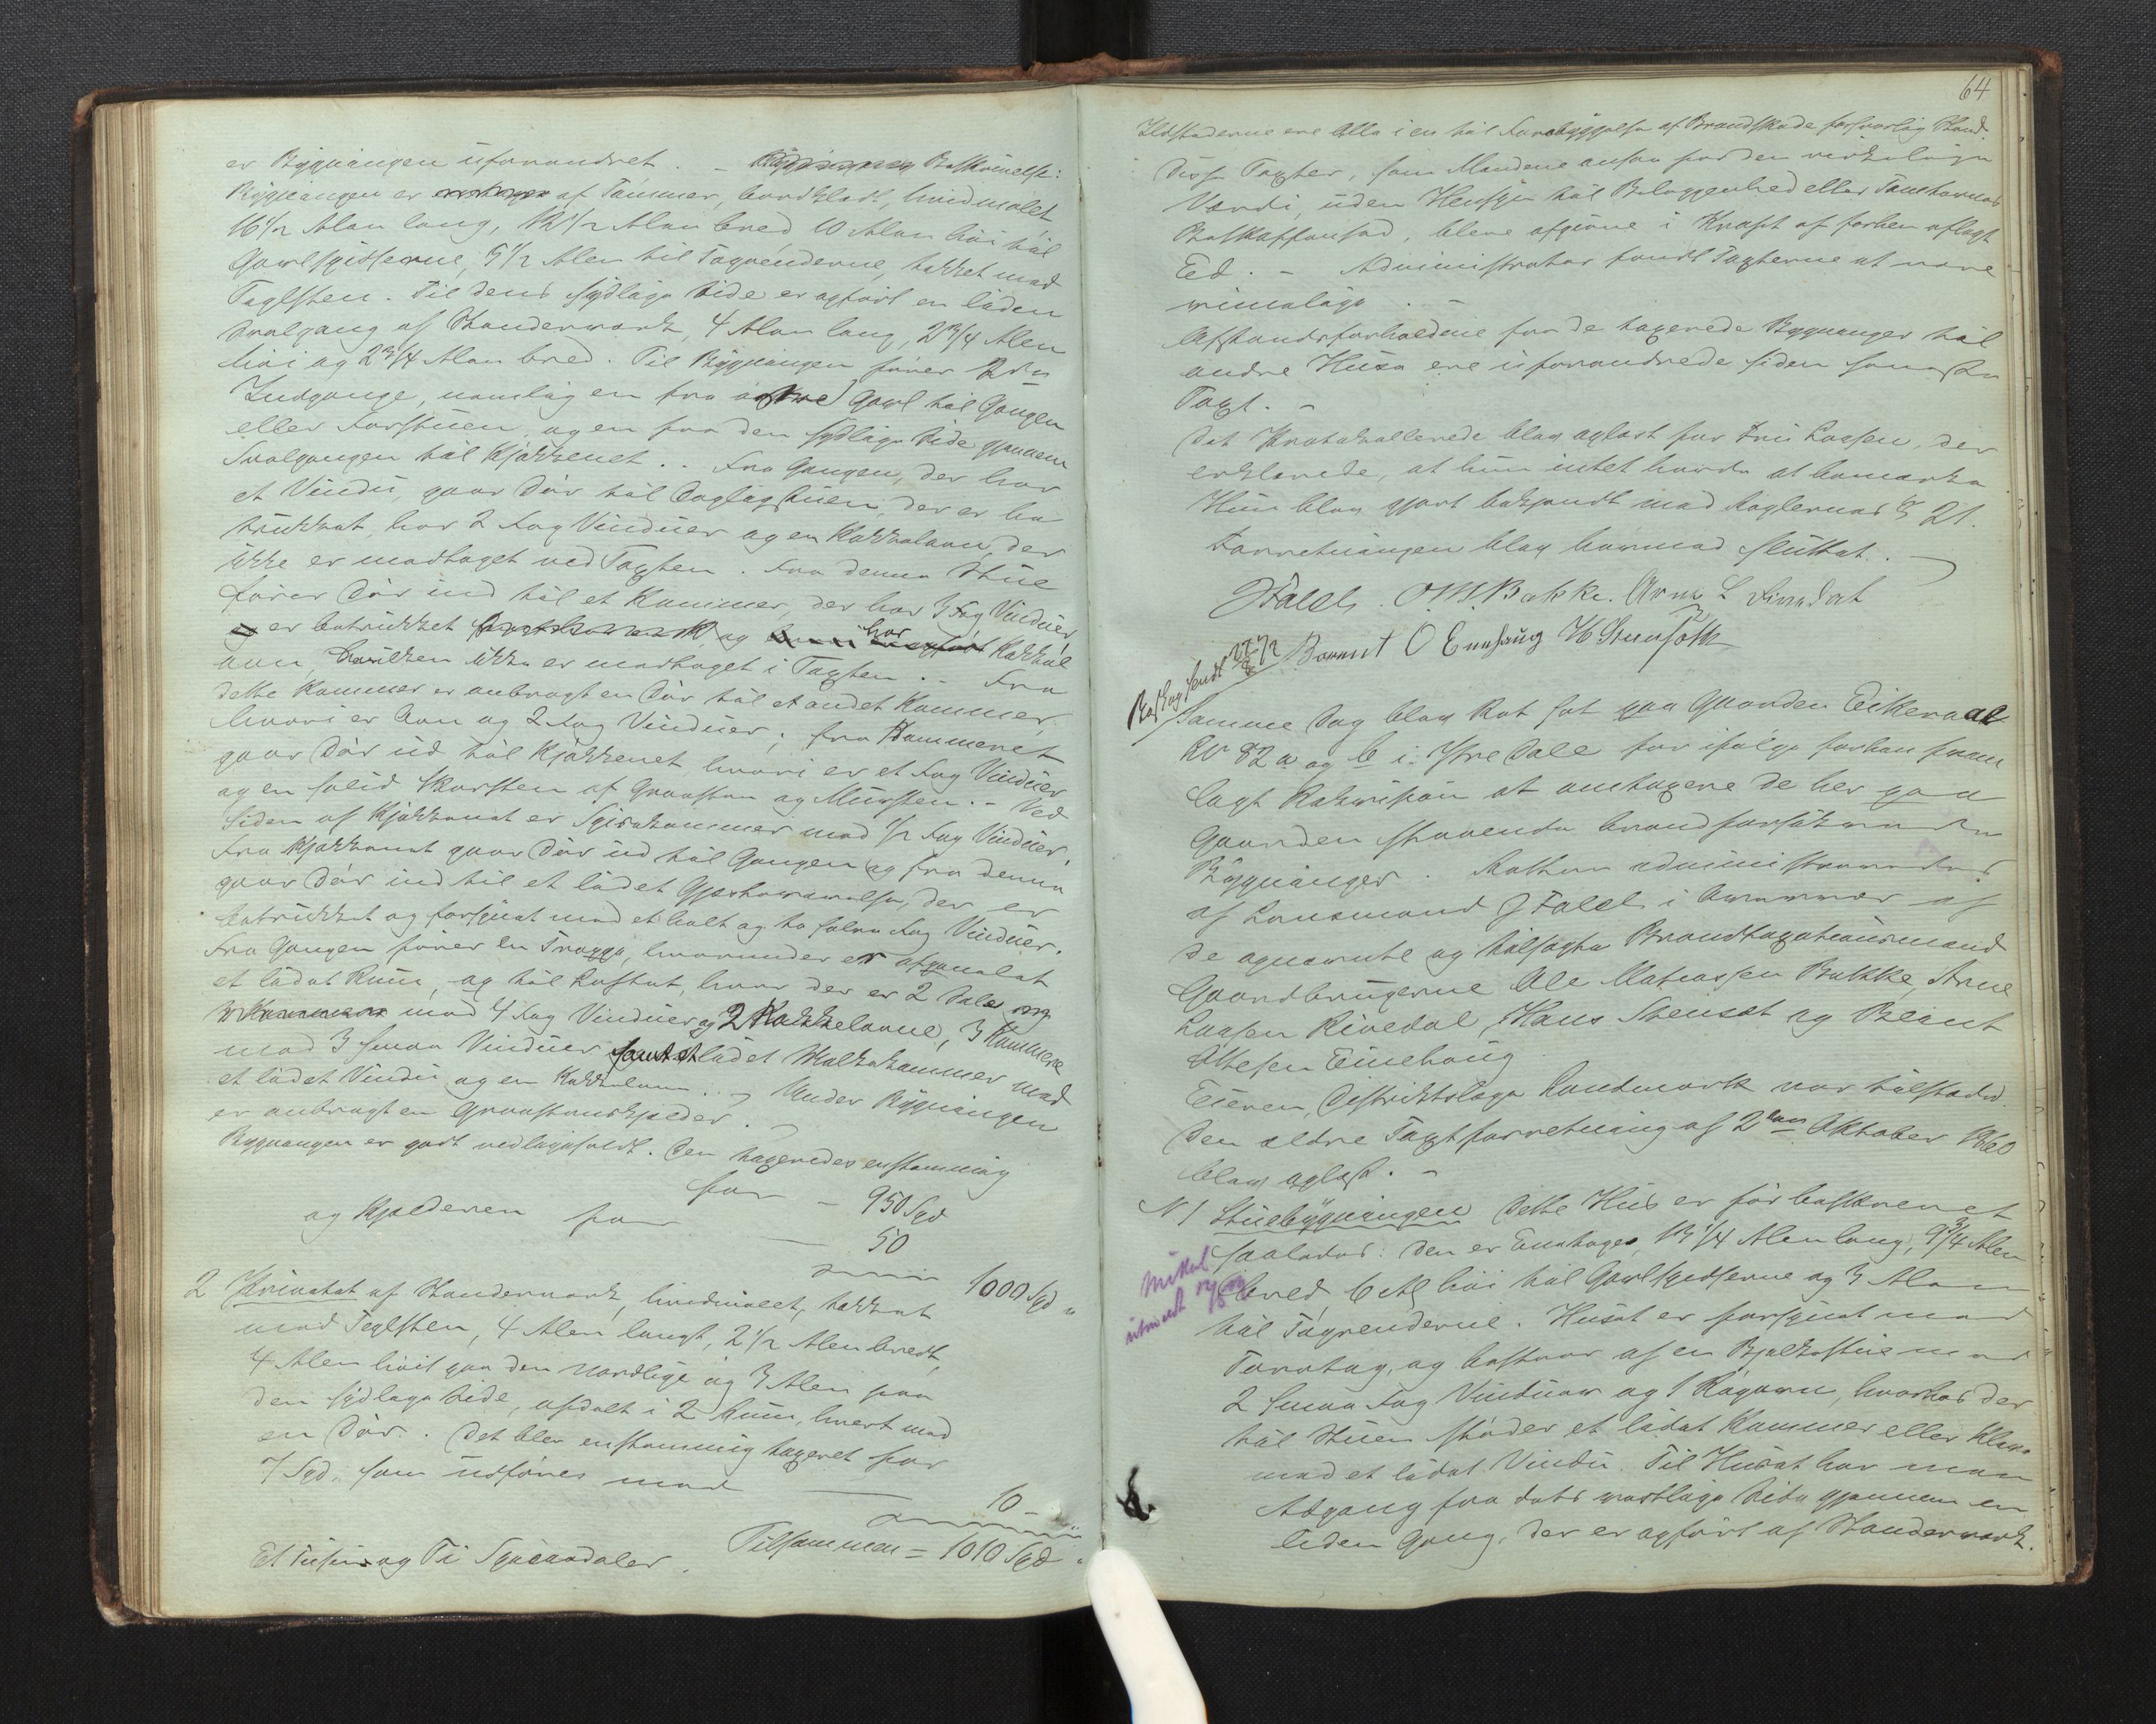 er Bygningen uforandret. – Beskrivelse:
Bygningen er af Tømmer, bordklædt, hvidmalet
16 1/2 Alen lang, 12 1/2 Alen bred 10 Alen höi til
Gavlspidserne, 5 1/2 Alen til Tagrenderne, tækket med
Taglsten. Til dens sydlige Side er opfört en liden
Svalgang af Stenderværk, 4 Alen lang, 2 3/4 Alen
höi og 2 3/4 Alen bred. Til Bygningen förer 2de
Indgange, nemlig en fra östre Gavl til Gangen
eller Forstuen, og en fra den sydlige Side gjennem
Svalgangen til Kjøkkenet. . Fra Gangen, der har
et Vindu, gaar Dör til Dagligstuen, der er be
trukket, har 2 Fag Vinduer og en Kakkelovn, der
ikke er medtaget ved Taxten. Fra denne Stue
förer Dör ind til et Kammer, der har 3 Fag Vinduer,
er betrukket og har Kakkel
ovn, hvilken ikke er medtaget i Taxten. – Fra
dette Kammer er anbragt en Dör til et andet Kammer,
hvori er Ovn og 2 Fag Vinduer; fra Kammeret
gaar Dör ud til Kjøkkenet, hvori er et Fag Vinduer
og en solid Skorsten af Graasten og Mursten. – Ved
Siden af Kjøkkenet er Spisekammer med 1/2 Fag Vinduer.
Fra Kjøkkenet gaar Dör ud til Gangen og fra denne
gaar Dör ind til et lidet Gjesteværelse, der er
betrukket og forsynet med et helt og to halve Fag Vinduer.
Fra Gangen förer en Trappe, hvorunder er afpanelet
et lidet Rum, op til Loftet, hvor der er 2 Sale
med 4 Fag Vinduer og 2 Kakkelovne, 3 Kammere
med 3 smaa Vinduer samt et lidet Kammer med
et lidet Vindu og en Kakkelovn. Under Bygningen
er anbragt en Graastenskjelder.
Bygningen er godt vedligeholdt. Den taxeredes enstemmig
for – 950 Spd
og Kjelderen for — 50
1000 Spd "
2 Privatet af Stenderværk, hvidmalet, tækket
med Teglsten, 4 Alen langt, 2 1/2 Alen bredt,
4 Alen höit paa den nordlige og 3 Alen paa
den sydlige Side, afdelt i 2 Rum, hvert med
en Dör. . Det blev enstemmig taxeret for
7 Spd. som udföres med — 10 – "
Tilsammen = 1010 Spd "
Et Tusinde og Ti Speciedaler.
64
Ildstederne ere alle i en til Forebyggelse af Brandskade forsvarlig Stand.
Disse Taxter, som Mændene ansaa for den virkelige
Værdi, uden Hensyn til Beliggenhed eller Tomternes
Beskaffenhed, bleve afgivne i Kraft af forhen aflagt
Ed. – Administrator fandt Taxterne at være
rimelige. –
Afstandsforholdene fra de taxerede Bygninger til
andre Huse ere uforandrede siden seneste
Taxt. –
Det Protokollerede blev oplæst for Fru Laasen, der
erklærede, at hun intet havde at bemærke.
Hun blev gjort bekjendt med Reglernes § 21.
Forretningen blev hermed sluttet. —
J Falch. O. M. Bakke. Arne L Rivedal
Berent O Einehaug H Stensæth
Beskr. sendt 27/8 72
Samme Dag blev Ret sat paa Gaarden Eikenaal
No 82 a og b i Ytre Dale for ifölge forhen frem
lagt Rekvisition at omtaxere de her paa
Gaarden staaende brandforsikrede
Bygninger. Retten administreredes
af Lensmand J Falch i Overvær af
de opnævnte og tilsagte Brandtaxationsmænd
Gaardbrugerne Ole Matiassen Bakke, Arne
Laasen Rivedal, Hans Stensæt og Beint
Ottesen Einehaug
Eieren, Distriktslæge Landmark var tilstede.
Den ældre Taxtforretning af 2den Oktober 1860
blev oplæst. –
N 1 Stuebygningen Dette Hus er för beskrevet
saaledes: Den er Enetages, 13 1/4 Alen lang, 9 3/4 Alen
bred 6 Al höi til Gavlspidserne og 3 Alen
til Tagrenderne. Huset er forsynet med
Torvtag, og bestaar af en Bjelkestue med
2 smaa Fag Vinduer og 1 Rögovn, hvorhos der
til Stuen stöder et lidet Kammer eller Kleve
med et lidet Vindu. Til Huset har man
Adgang fra dets vestlige Side gjennem en
liden Gang, der er opfört af Stenderværk.
utmeldt